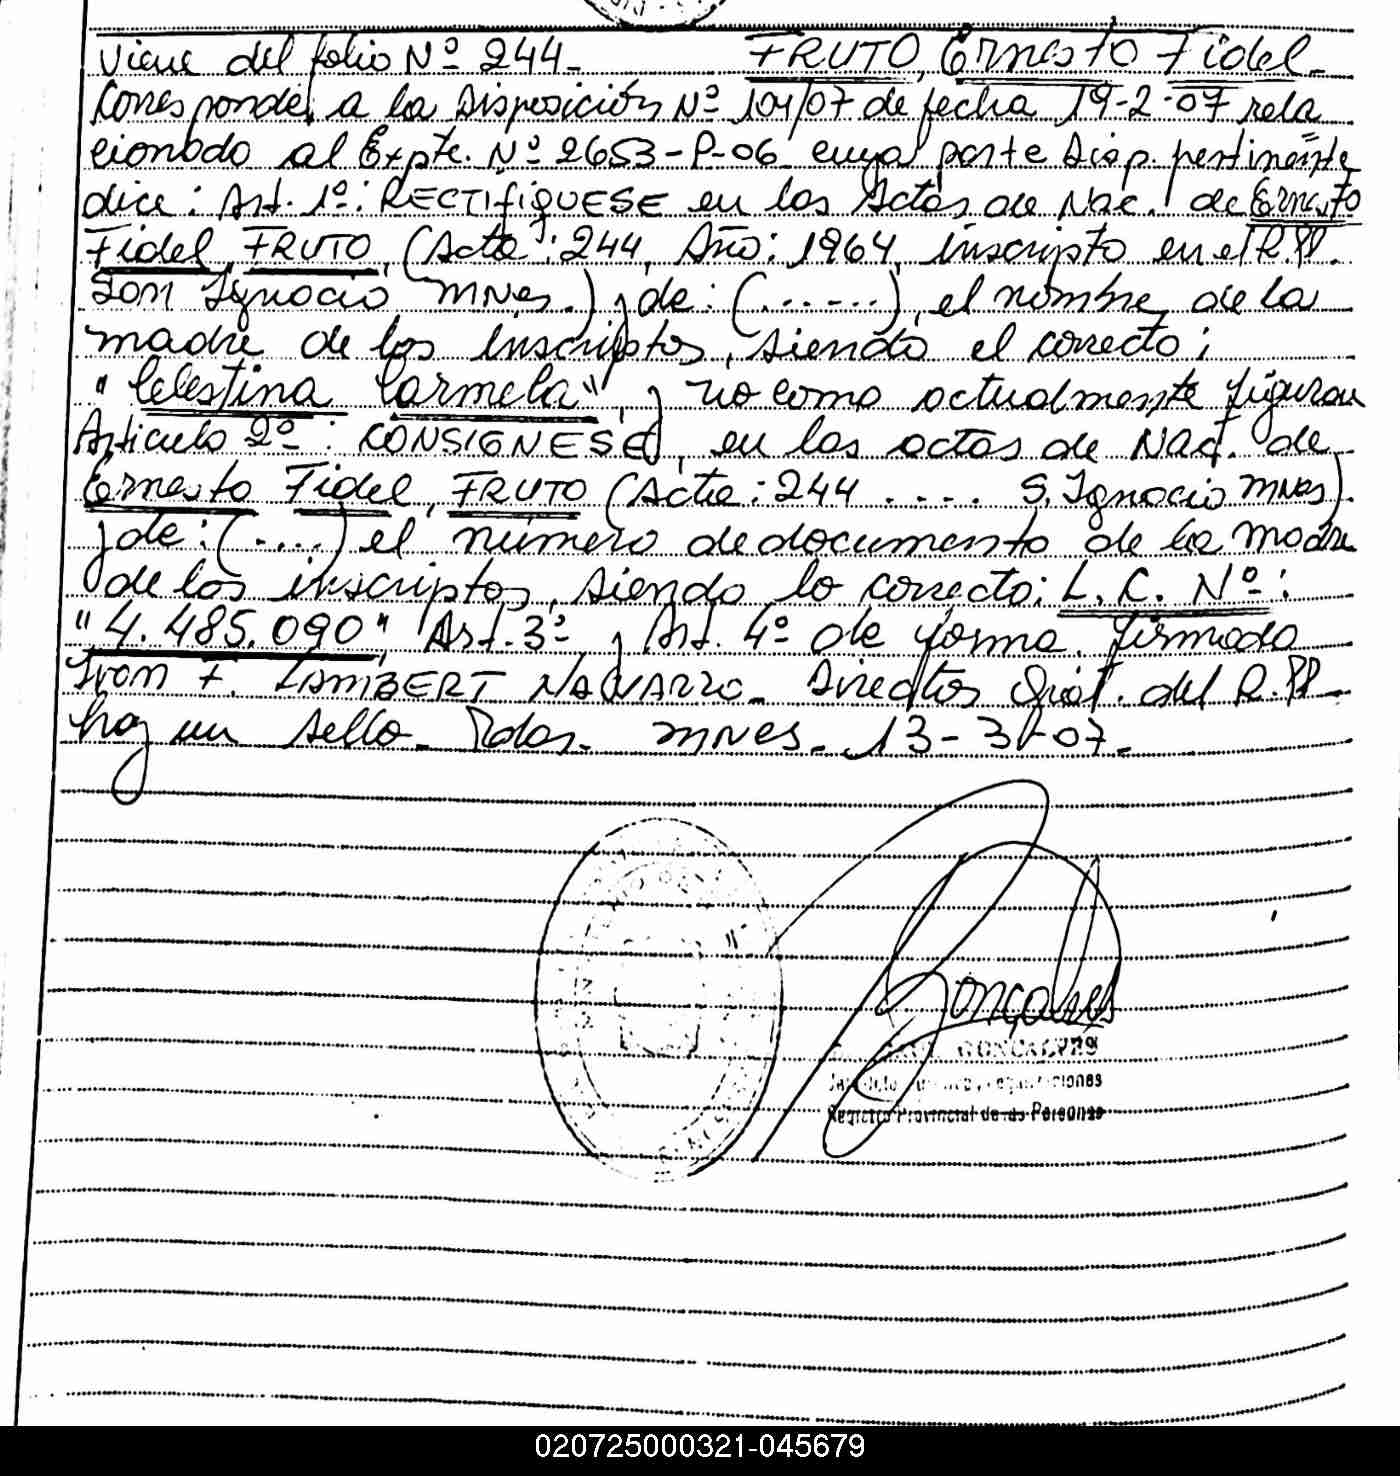 Viene del folio Nº 244- FRUTO, Ernesto Fidel-
Corresponde, a la Disposición Nº 104/07 de fecha 19-2-07 rela
cionado al Expte. Nº 2653-P-06 cuya parte Disp. pertinente
dice: Art. 1º: RECTIFIQUESE en las Actas de Nac. de Ernesto
Fidel, FRUTO, (Acta: 244, Año: 1964, inscripto en el R.PP.
San Ignacio Mnes.) y de: (......), el nombre de la
madre de los inscriptos, siendo el correcto:
"Celestina Carmela", y no como actualmente figuran
Articulo 2º: CONSIGNESE, en las actas de Nac. de
Ernesto Fidel, FRUTO (Acta: 244 .... S. Ignacio Mnes)
y de: (.....) el número de documento de la madre
de los inscriptos, siendo lo correcto: L. C. Nº:
"4.485.090", Art. 3º y Art. 4º de forma. firmado
Ivan F. LAMBERT NAVARRO- Director Gral. del R.PP-
hay un sello- Pdas- mnes- 13-3-07-
Gonçalves
GONCALVES
Registro Provincial de las Personas
020725000321-045679